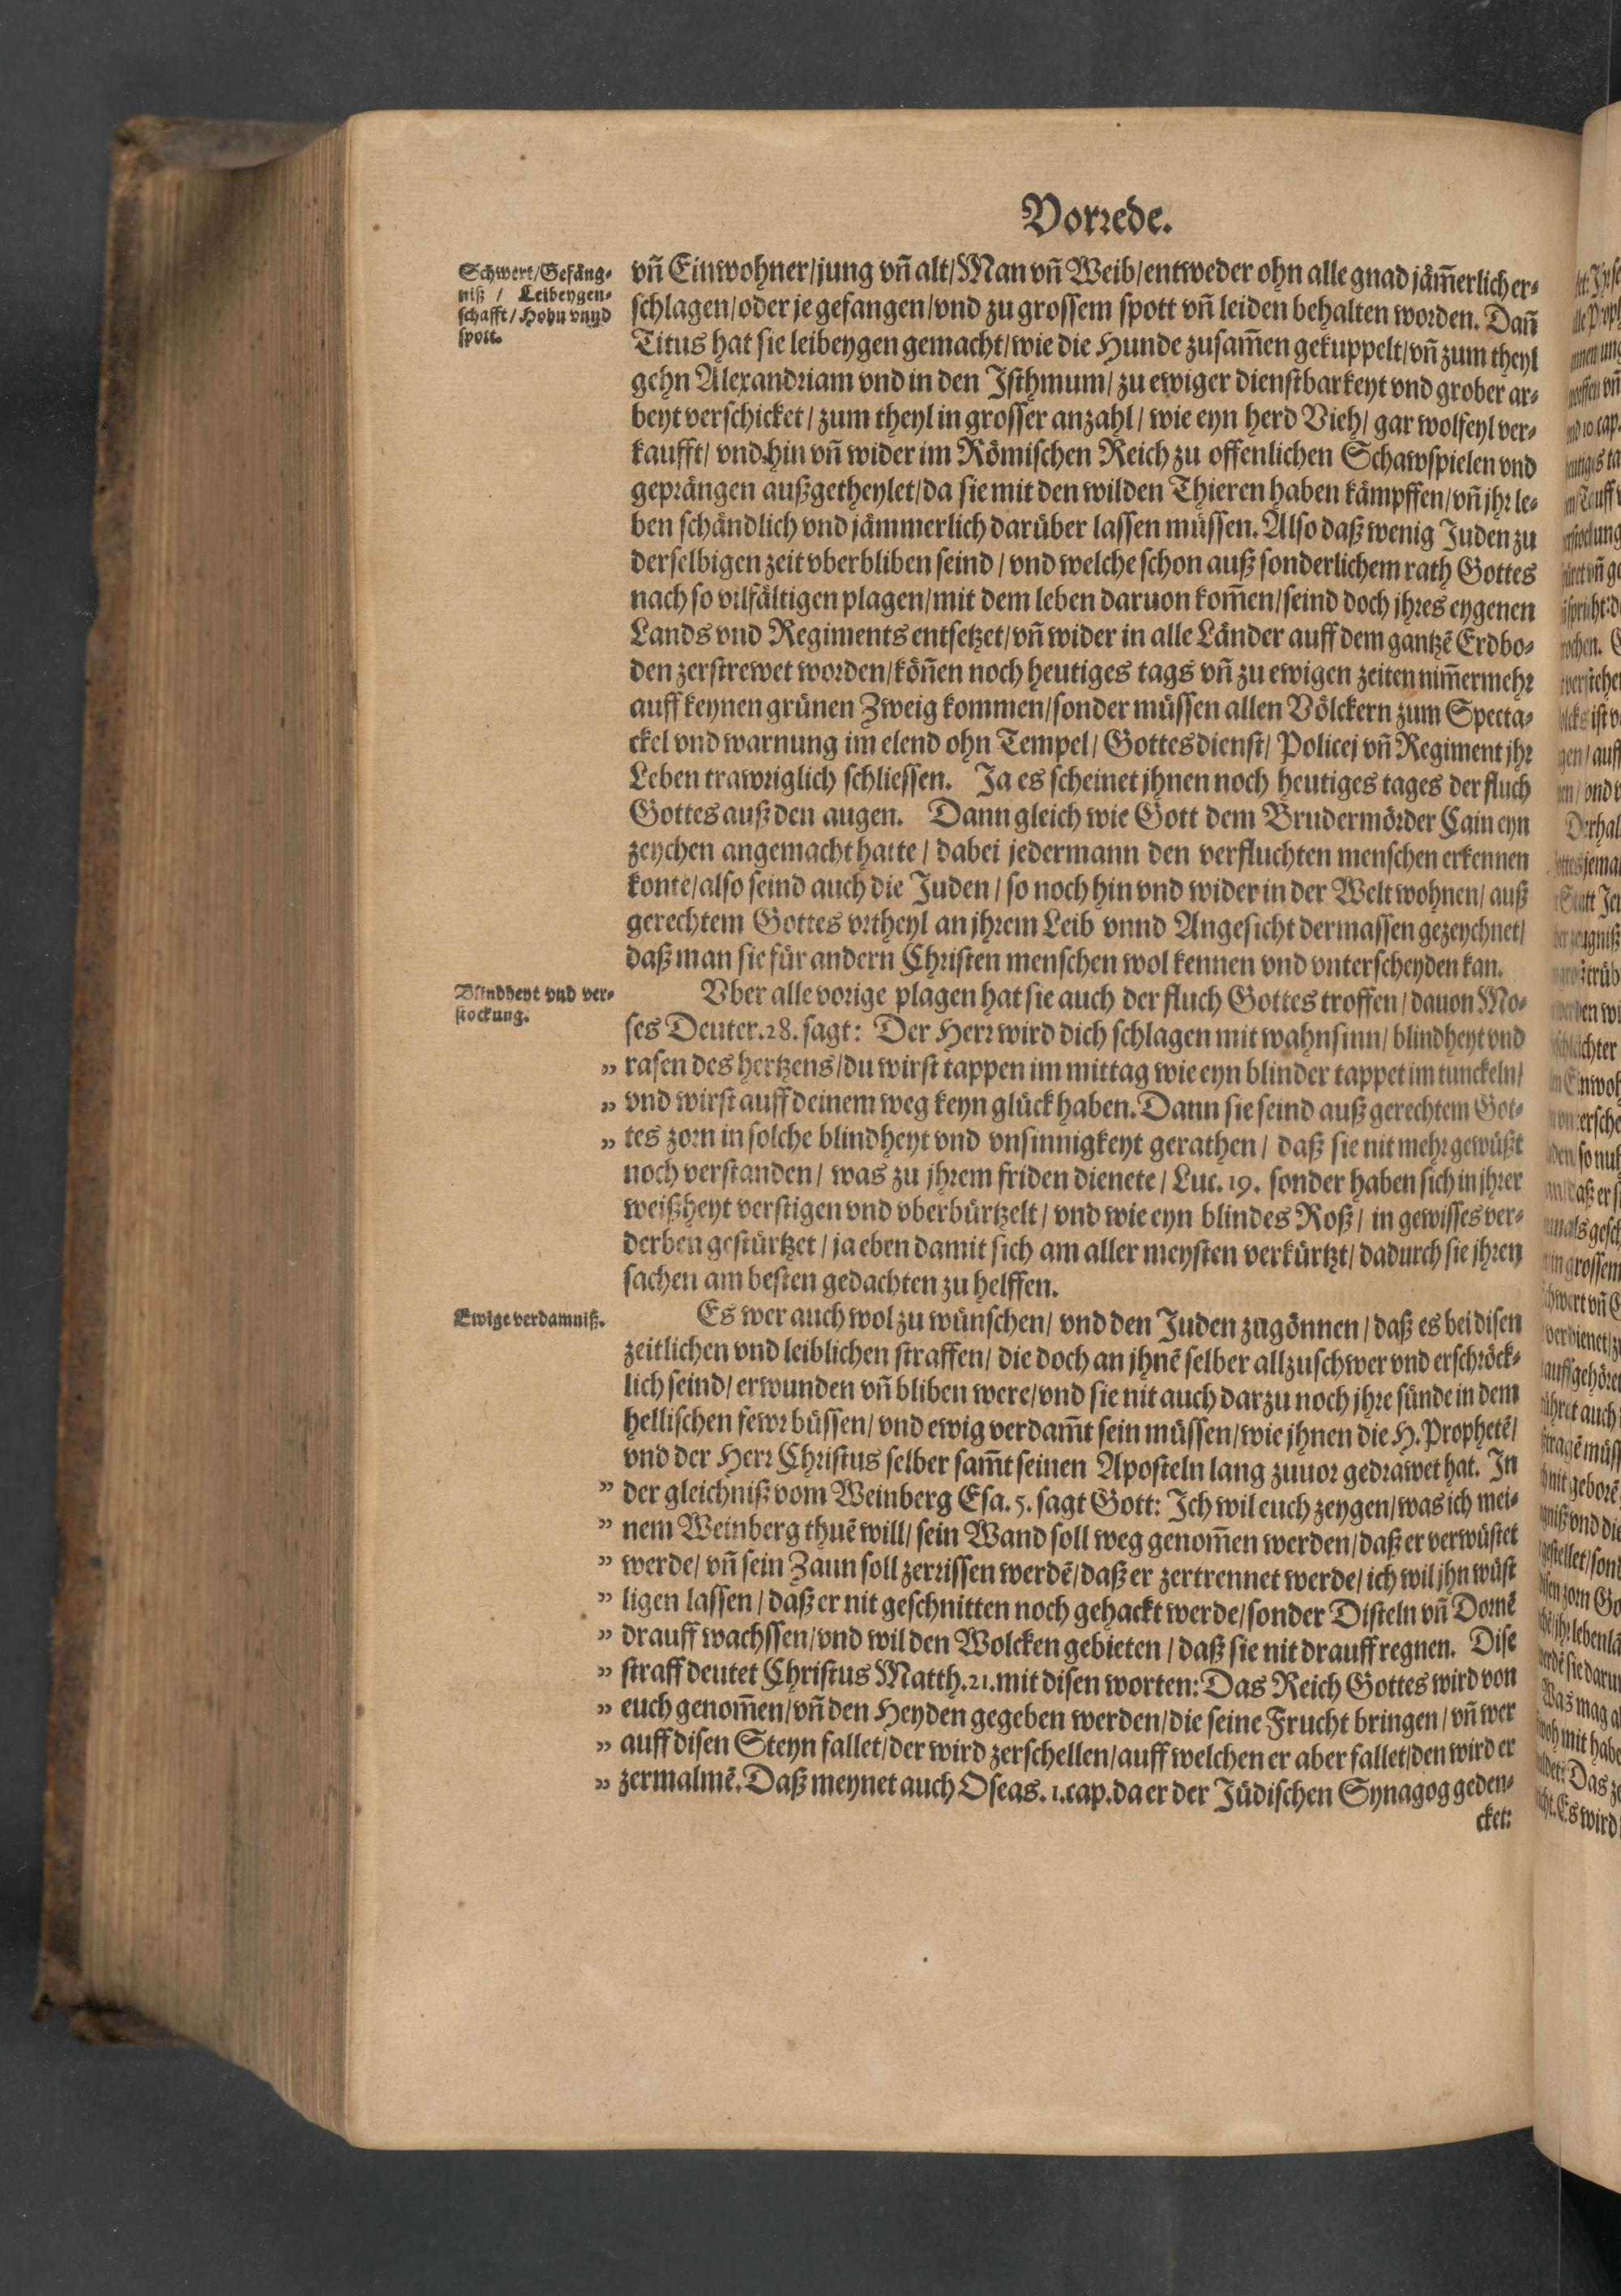 Vorrede.
Schwert/Gefäng-
niß / Leibeygen-
schafft/Hohn vnnd
spott.
vñ Einwohner/jung vñ alt/Man vñ Weib/entweder ohn alle gnad jäm̃erlich er-
schlagen/oder je gefangen/vnd zu grossem spott vñ leiden behalten worden. Dañ
Titus hat sie leibeygen gemacht/wie die Hunde zusam̃en gekuppelt/vñ zum theyl
gehn Alexandriam vnd in den Isthmum/zu ewiger dienstbarkeyt vnd grober ar-
beyt verschicket/zum theyl in grosser anzahl/wie eyn herd Vieh/gar wolfeyl ver-
kaufft/vnd hin vñ wider im Römischen Reich zu offenlichen Schawspielen vnd
geprängen außgetheylet/da sie mit den wilden Thieren haben kämpffen/vñ jhr le-
ben schändlich vnd jämmerlich darüber lassen müssen. Also daß wenig Juden zu
derselbigen zeit vberbliben seind/vnd welche schon auß sonderlichem rath Gottes
nach so vilfältigen plagen/mit dem leben daruon kom̃en/seind doch jhres eygenen
Lands vnd Regiments entsetzet/vñ wider in alle Länder auff dem gantzẽ Erdbo-
den zerstrewet worden/köñen noch heutiges tags vñ zu ewigen zeiten nim̃ermehr
auff keynen grünen Zweig kommen/sonder müssen allen Völckern zum Specta-
ckel vnd warnung im elend ohn Tempel/Gottesdienst/Policej vñ Regiment jhr
Leben trawriglich schliessen. Ja es scheinet jhnen noch heutiges tages der fluch
Gottes auß den augen. Dann gleich wie Gott dem Brudermörder Cain eyn
zeychen angemacht hatte/dabei jedermann den verfluchten menschen erkennen
konte/also seind auch die Juden/so noch hin vnd wider in der Welt wohnen/auß
gerechtem Gottes vrtheyl an jhrem Leib vnnd Angesicht dermassen gezeychnet/
daß man sie für andern Christen menschen wol kennen vnd vnterscheyden kan.
Blindheyt vnd ver-
stockung.
Vber alle vorige plagen hat sie auch der fluch Gottes troffen/dauon Mo-
ses Deuter.28. sagt: Der Herr wird dich schlagen mit wahnsinn/blindheyt vnd
„ rasen des hertzens/du wirst tappen im mittag wie eyn blinder tappet im tunckeln/
„ vnd wirst auff deinem weg keyn glück haben. Dann sie seind auß gerechtem Got-
„ tes zorn in solche blindheyt vnd vnsinnigkeyt gerathen/daß sie nit mehr gewüßt
noch verstanden/was zu jhrem friden dienete/Luc. 19. sonder haben sich in jhrer
weißheyt verstigen vnd vberbürtzelt/vnd wie eyn blindes Roß/in gewisses ver-
derben gestürtzet/ja eben damit sich am aller meysten verkürtzt/dadurch sie jhren
sachen am besten gedachten zu helffen.
Ewige verdamniß.
Es wer auch wol zu wünschen/vnd den Juden zugönnen/daß es bei disen
zeitlichen vnd leiblichen straffen/die doch an jhnẽ selber allzuschwer vnd erschröck-
lich seind/erwunden vñ bliben were/vnd sie nit auch darzu noch jhre sünde in dem
hellischen fewr büssen/vnd ewig verdam̃t sein müssen/wie jhnen die H. Prophetẽ/
vnd der Herr Christus selber sam̃t seinen Aposteln lang zuuor gedrawet hat. In
„ der gleichniß vom Weinberg Esa. 5. sagt Gott: Ich wil euch zeygen/was ich mei-
„ nem Weinberg thuẽ will/sein Wand soll weg genom̃en werden/daß er verwüstet
„ werde/vñ sein Zaun soll zerrissen werdẽ/daß er zertrennet werde/ich wil jhn wüst
„ ligen lassen/daß er nit geschnitten noch gehackt werde/sonder Disteln vñ Dornẽ
„ drauff wachssen/vnd wil den Wolcken gebieten/daß sie nit drauff regnen. Dise
„ straff deutet Christus Matth.21.mit disen worten: Das Reich Gottes wird von
„ euch genom̃en/vñ den Heyden gegeben werden/die seine Frucht bringen/vñ wer
„ auff disen Steyn fallet/der wird zerschellen/auff welchen er aber fallet/den wird er
„ zermalmẽ. Daß meynet auch Oseas. 1.cap.da er der Jüdischen Synagog geden-
cket: